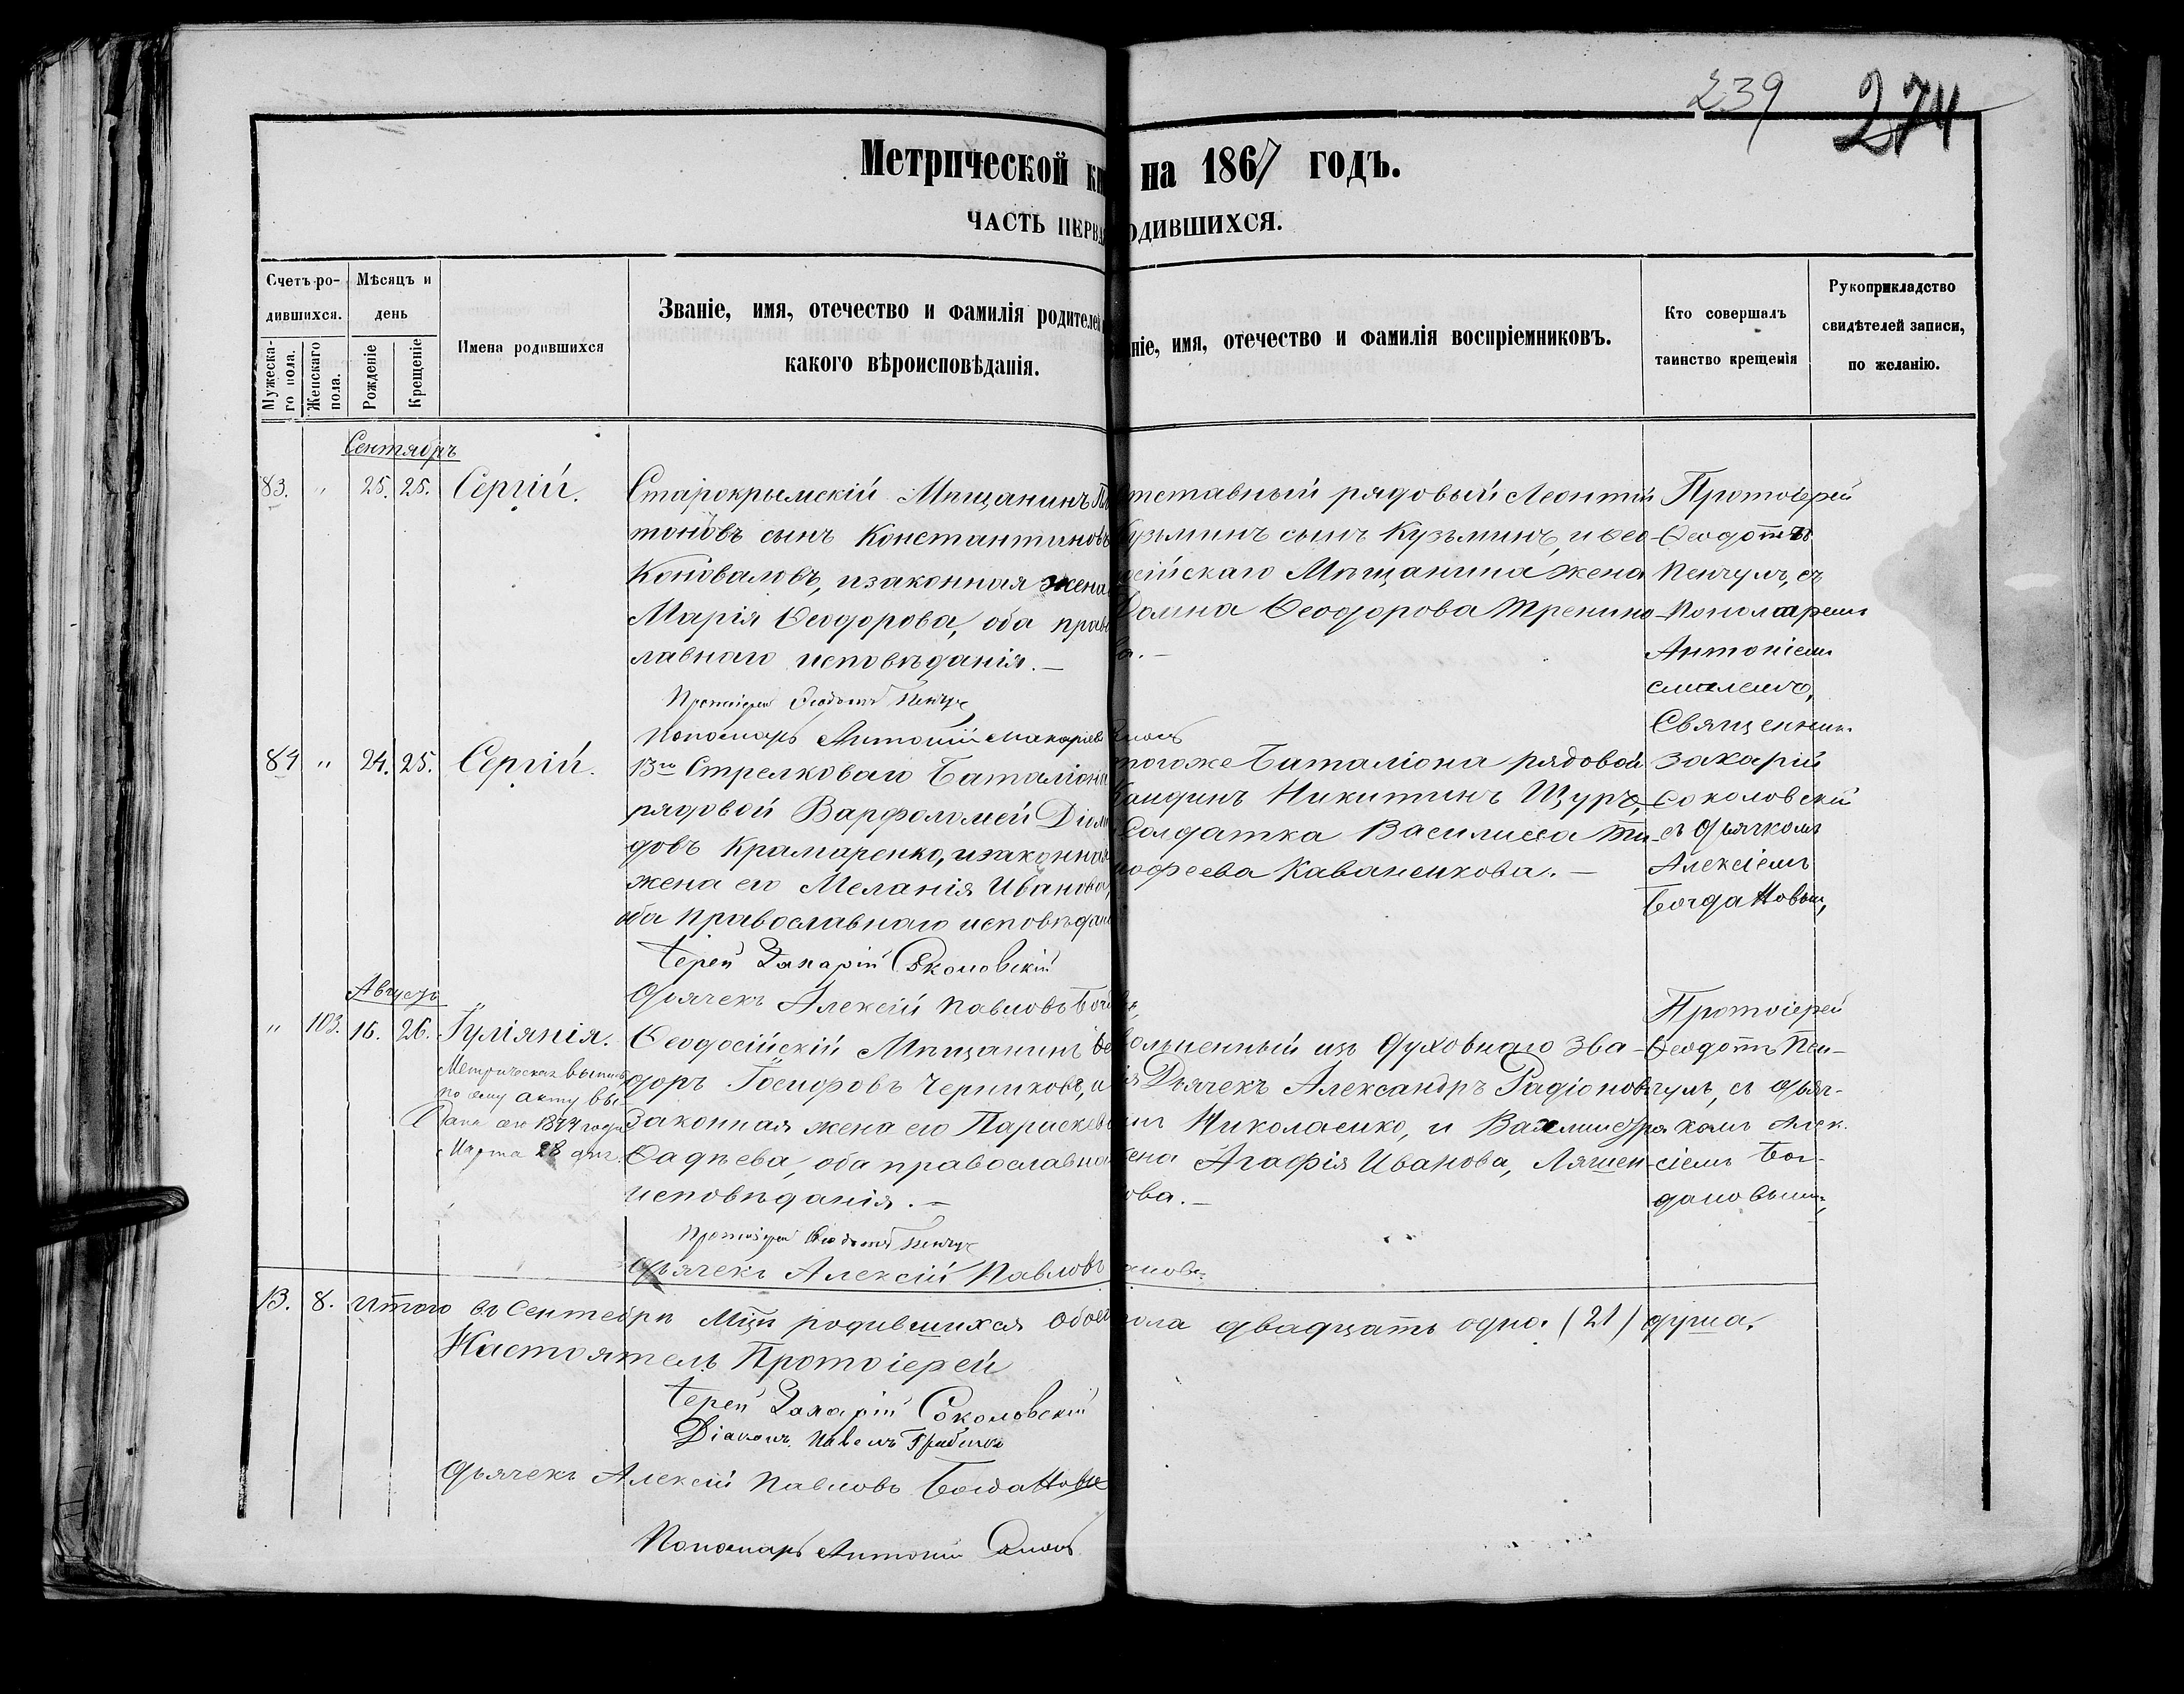 239 274
Метрической кн на 1867 годъ.
ЧАСТЬ ПЕРВА ОДИВШИХСЯ.
Счетъ ро-
дившихся.
Мужеска-
го пола.
Женскаго
пола.
Мѣсяцъ и
день
Рожденіе
Крещеніе
Имена родившихся
Званіе, имя, отечество и фамилія родителей
какого вѣроисповѣданія.
ніе, имя, отечество и фамилія воспріемниковъ.
Кто совершалъ
таинство крещенія
Рукоприкладство
свидѣтелей записи,
по желанію.
Сентябрь
83. " 25. 25. Сергій.
Старокрымскій Мѣщанинъ
тоновъ сынъ Константиновъ
Коноваловъ, изаконная жена
Марія Ѳеодорова, оба право
лавнаго исповѣданія.—
Протоіерей Ѳеодотъ Пенчул
Пономарь Антоній Макаріев
тставный рядовый Леонтій
узьминъ сынъ Кузьминъ, и Ѳео-
сійскаго Мѣщанина жена
Домна Ѳеодорова Тренино-
ва.—
Протоіерей
Ѳеодотъ
Пенчулъ, съ
Пономаремъ
Антоніемъ
84 " 24. 25. Сергій.
13го Стрелковаго Баталіона
рядовой Варфоломей Діом
довъ Крамаренко, изаконная
жена его Меланія Иванова,
оба православнаго исповѣдан
Іерей Захарій Соколовскій
Дьячекъ Алексій Павловъ Богд
тогоже Баталіона рядовой
Никитинъ Щуръ,
Солдатка Василисса Ти-
мофеева Каваненкова.—
Священник
Захарій
Соколовскій
съ Дьячкомъ
Алексіемъ
Богдановым,
Августъ
" 103. 16. 26. Іуліянія.
Метрическая выпись
по сему акту вы-
дана 1877 года
Марта 28 дня.
Ѳеодосійскій Мѣщанинъ Ѳе
доръ Іосифовъ Черниковъ, и
Законная жена его Параскев
Ѳадѣева, оба православна
исповѣданія.—
Протоіерей Ѳеодотъ Пенчул
Дьячекъ Алексій Павловъ ановъ
вольненный изъ Духовнаго Зва-
ія Дьячекъ Александръ Радіоновъ
инъ Николаенко, и Вахмистра
ена Агафія Иванова, Ляшен-
ова.—
Протоіерей
Ѳеодотъ Пен-
чулъ, съ Дьяч-
комъ Алек-
сіемъ Бог-
дановымъ,
13. 8. Итого въ Сентябрѣ Мцѣ родившихся Обоег пола двадцать одна (21) душа.
Настоятель Протоіерей
Іерей Захарій Соколовскій
Діаконъ Павелъ
Дьячекъ Алексій Павловъ Богдановъ
Пономарь Антоній